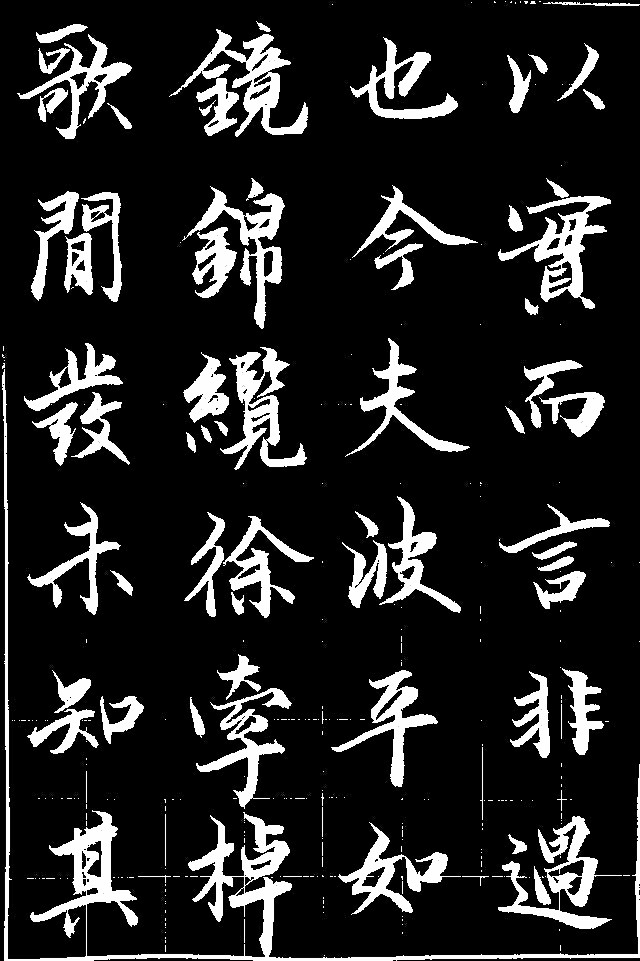 以實而言非過
也今夫波平如
鏡錦纜徐牽棹
歌閒發未知其